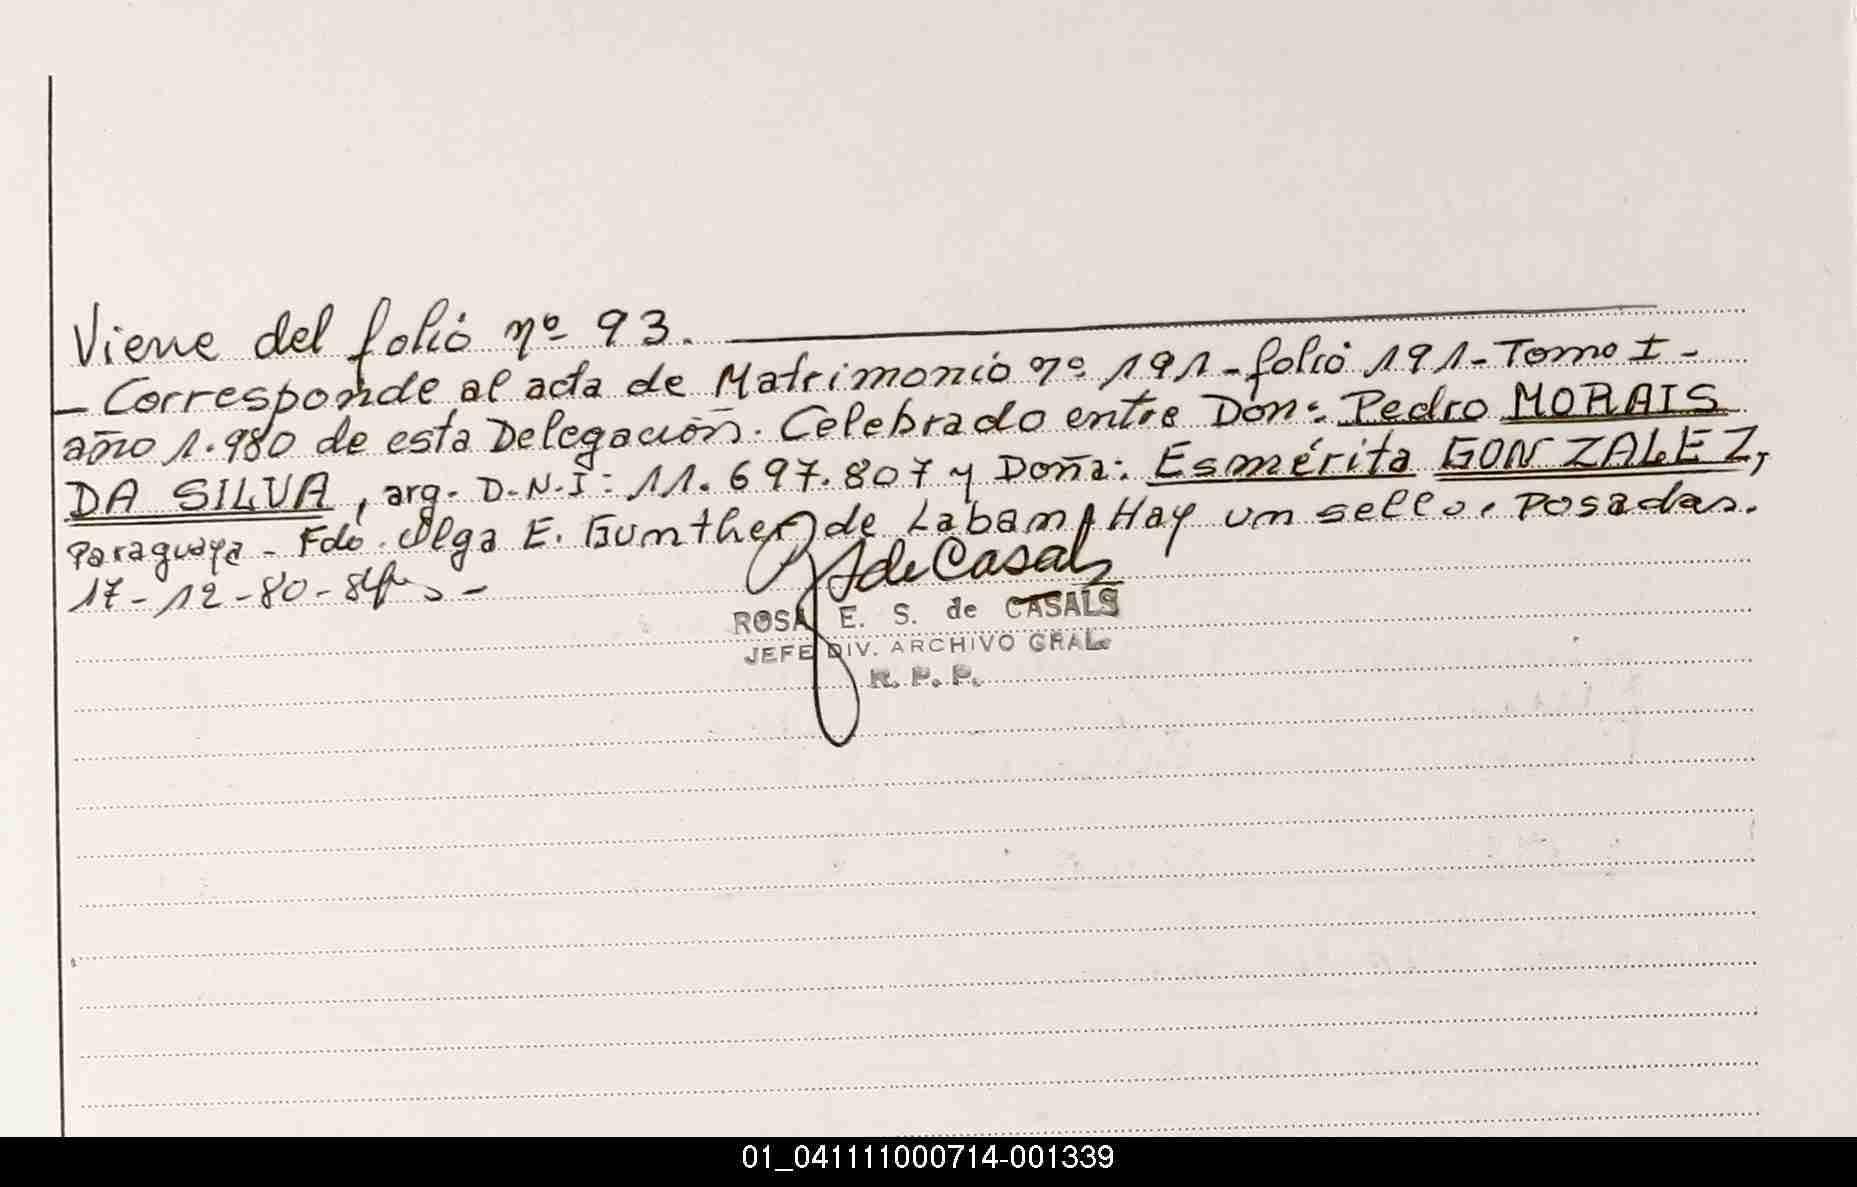 Viene del folio nº 93.
- Corresponde al acta de Matrimonio nº 191 - folio 191 - Tomo I -
año 1.980 de esta Delegación. Celebrado entre Don: Pedro MORAIS
DA SILVA, arg. D.N.I: 11.697.807 y Doña: Esmérita GONZALEZ,
Paraguaya - Fdo. Olga E. Gunther de Laban, Hay un sello. Posadas.
17-12-80-
S de Casals
ROSA E. S. de CASALS
JEFE DIV. ARCHIVO GRAL.
R. P. P.
01_041111000714-001339